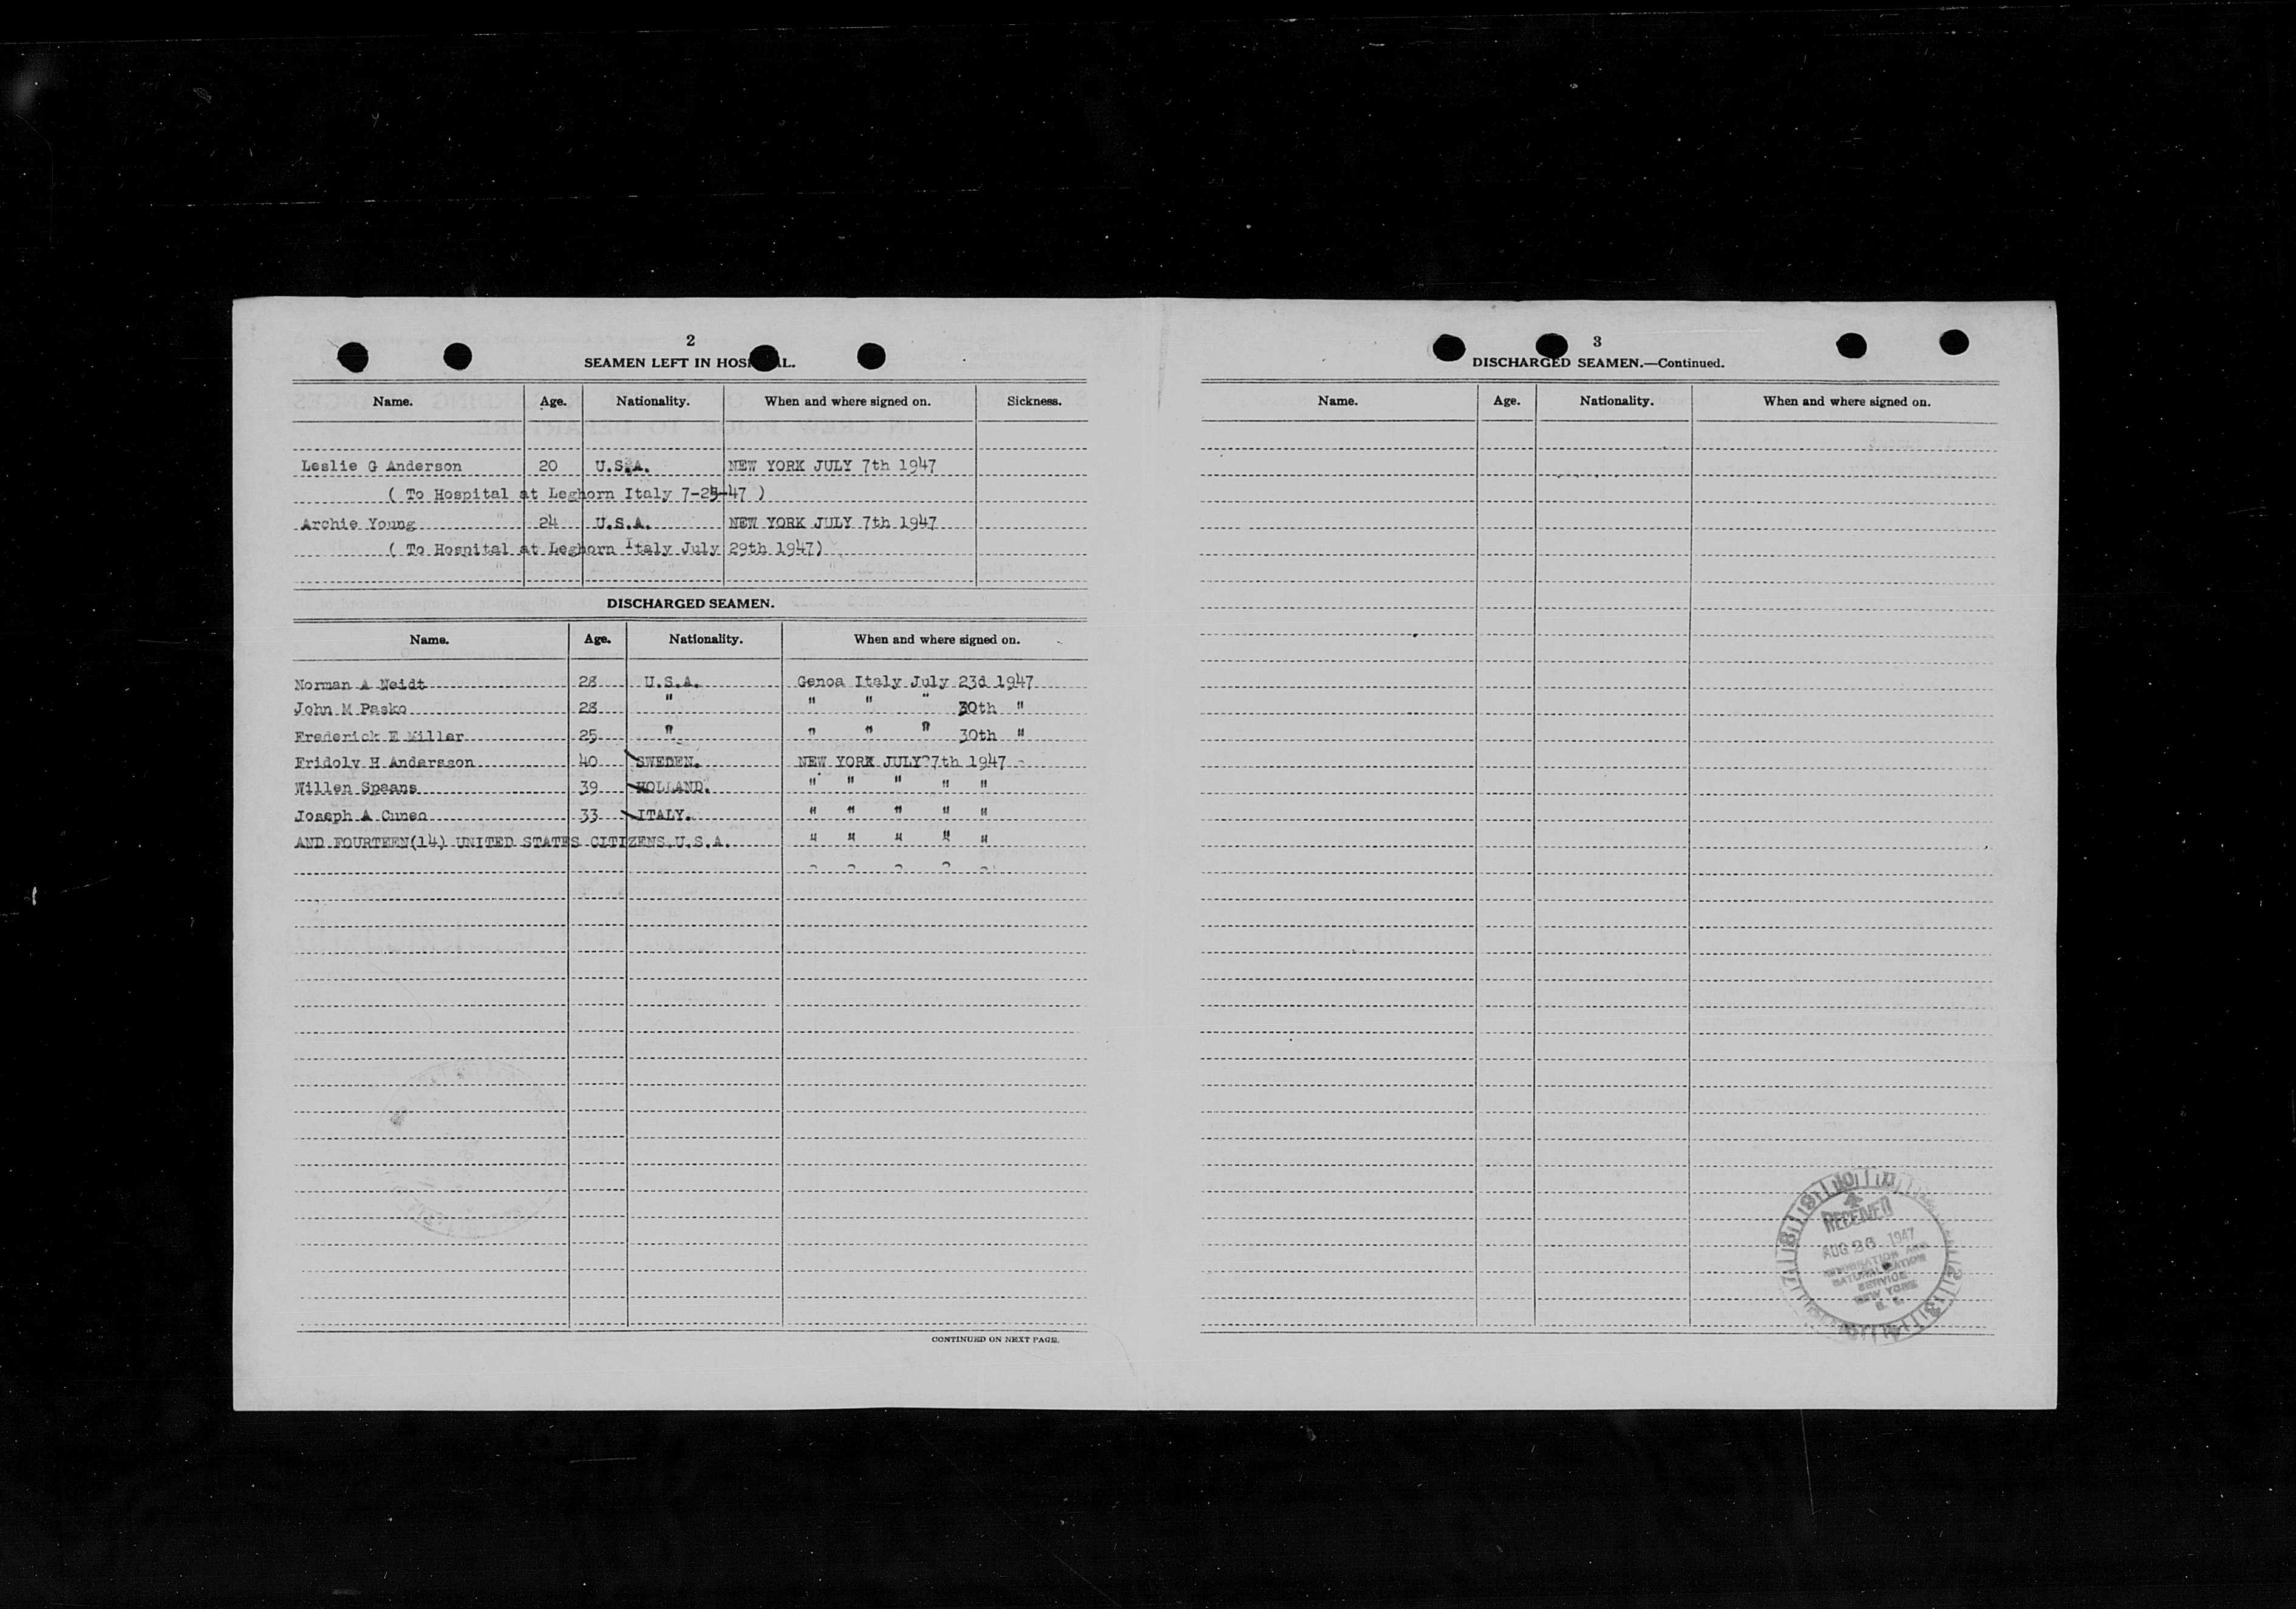 2
SEAMEN LEFT IN HOSPITAL.
Name. Age. Nationality. When and where signed on. Sickness.
Leslie G Anderson 20 U.S.A. NEW YORK JULY 7th 1947
( To Hospital at Leghorn Italy 7-25-47 )
Archie Young 24 U.S.A. NEW YORK JULY 7th 1947
( To Hospital at Leghorn Italy July 29th 1947)
DISCHARGED SEAMEN.
Name. Age. Nationality. When and where signed on.
Norman A Neidt 28 U.S.A. Genoa Italy July 23d 1947
John M Pasko 28 " " " " 30th "
Frederick E Miller 25 " " " " 30th "
Fridolv H Andersson 40 SWEDEN. NEW YORK JULY 7th 1947
Willen Spaans 39 HOLLAND. " " " " "
Joseph A Cuneo 33 ITALY. " " " " "
AND FOURTEEN(14) UNITED STATES CITIZENS.U.S.A. " " " " "
CONTINUED ON NEXT PAGE.
3
DISCHARGED SEAMEN.—Continued.
Name. Age. Nationality. When and where signed on.
RECEIVED
AUG 26 1947
IMMIGRATION AND
NATURALIZATION
SERVICE
NEW YORK